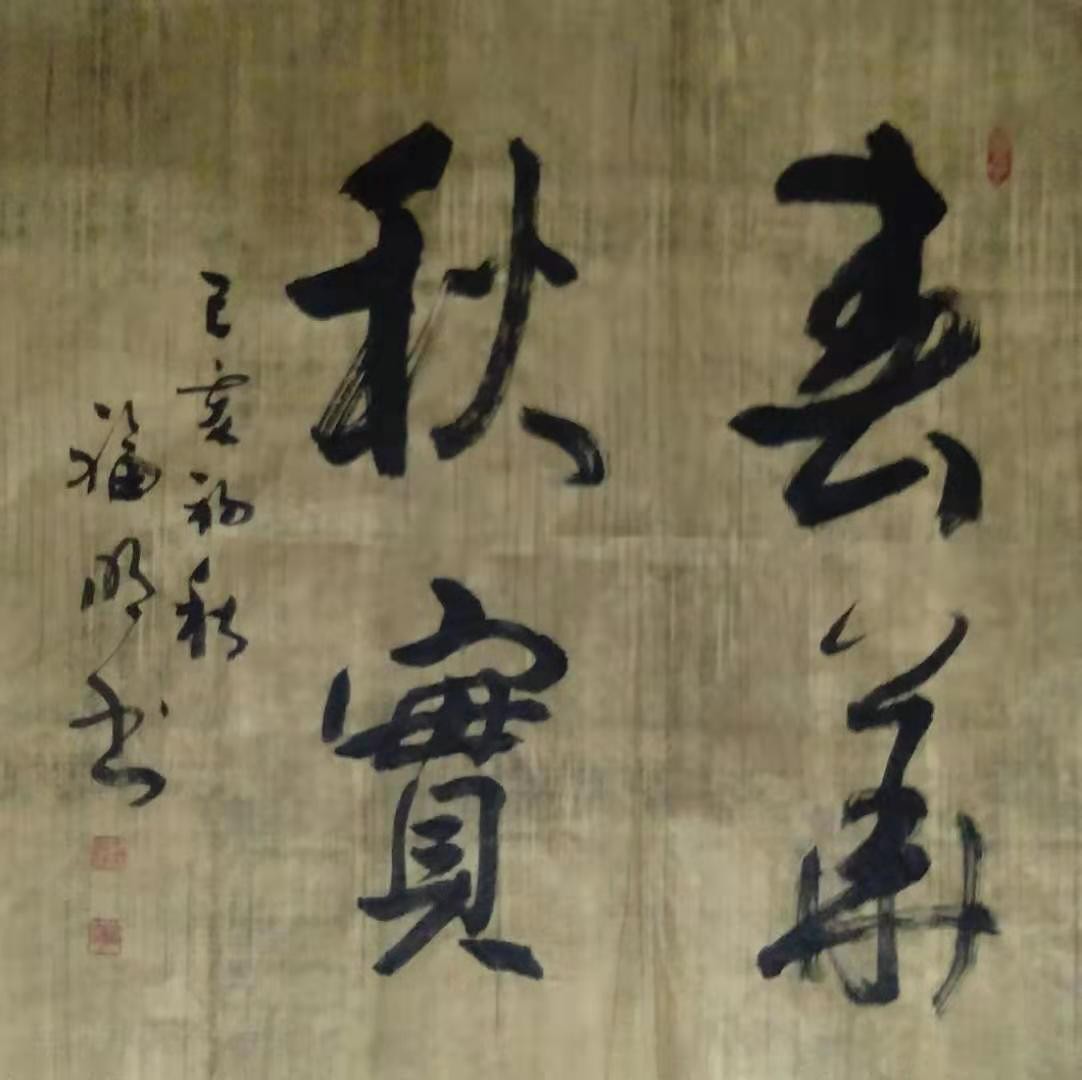 春華
秋實
己亥初秋
福明书